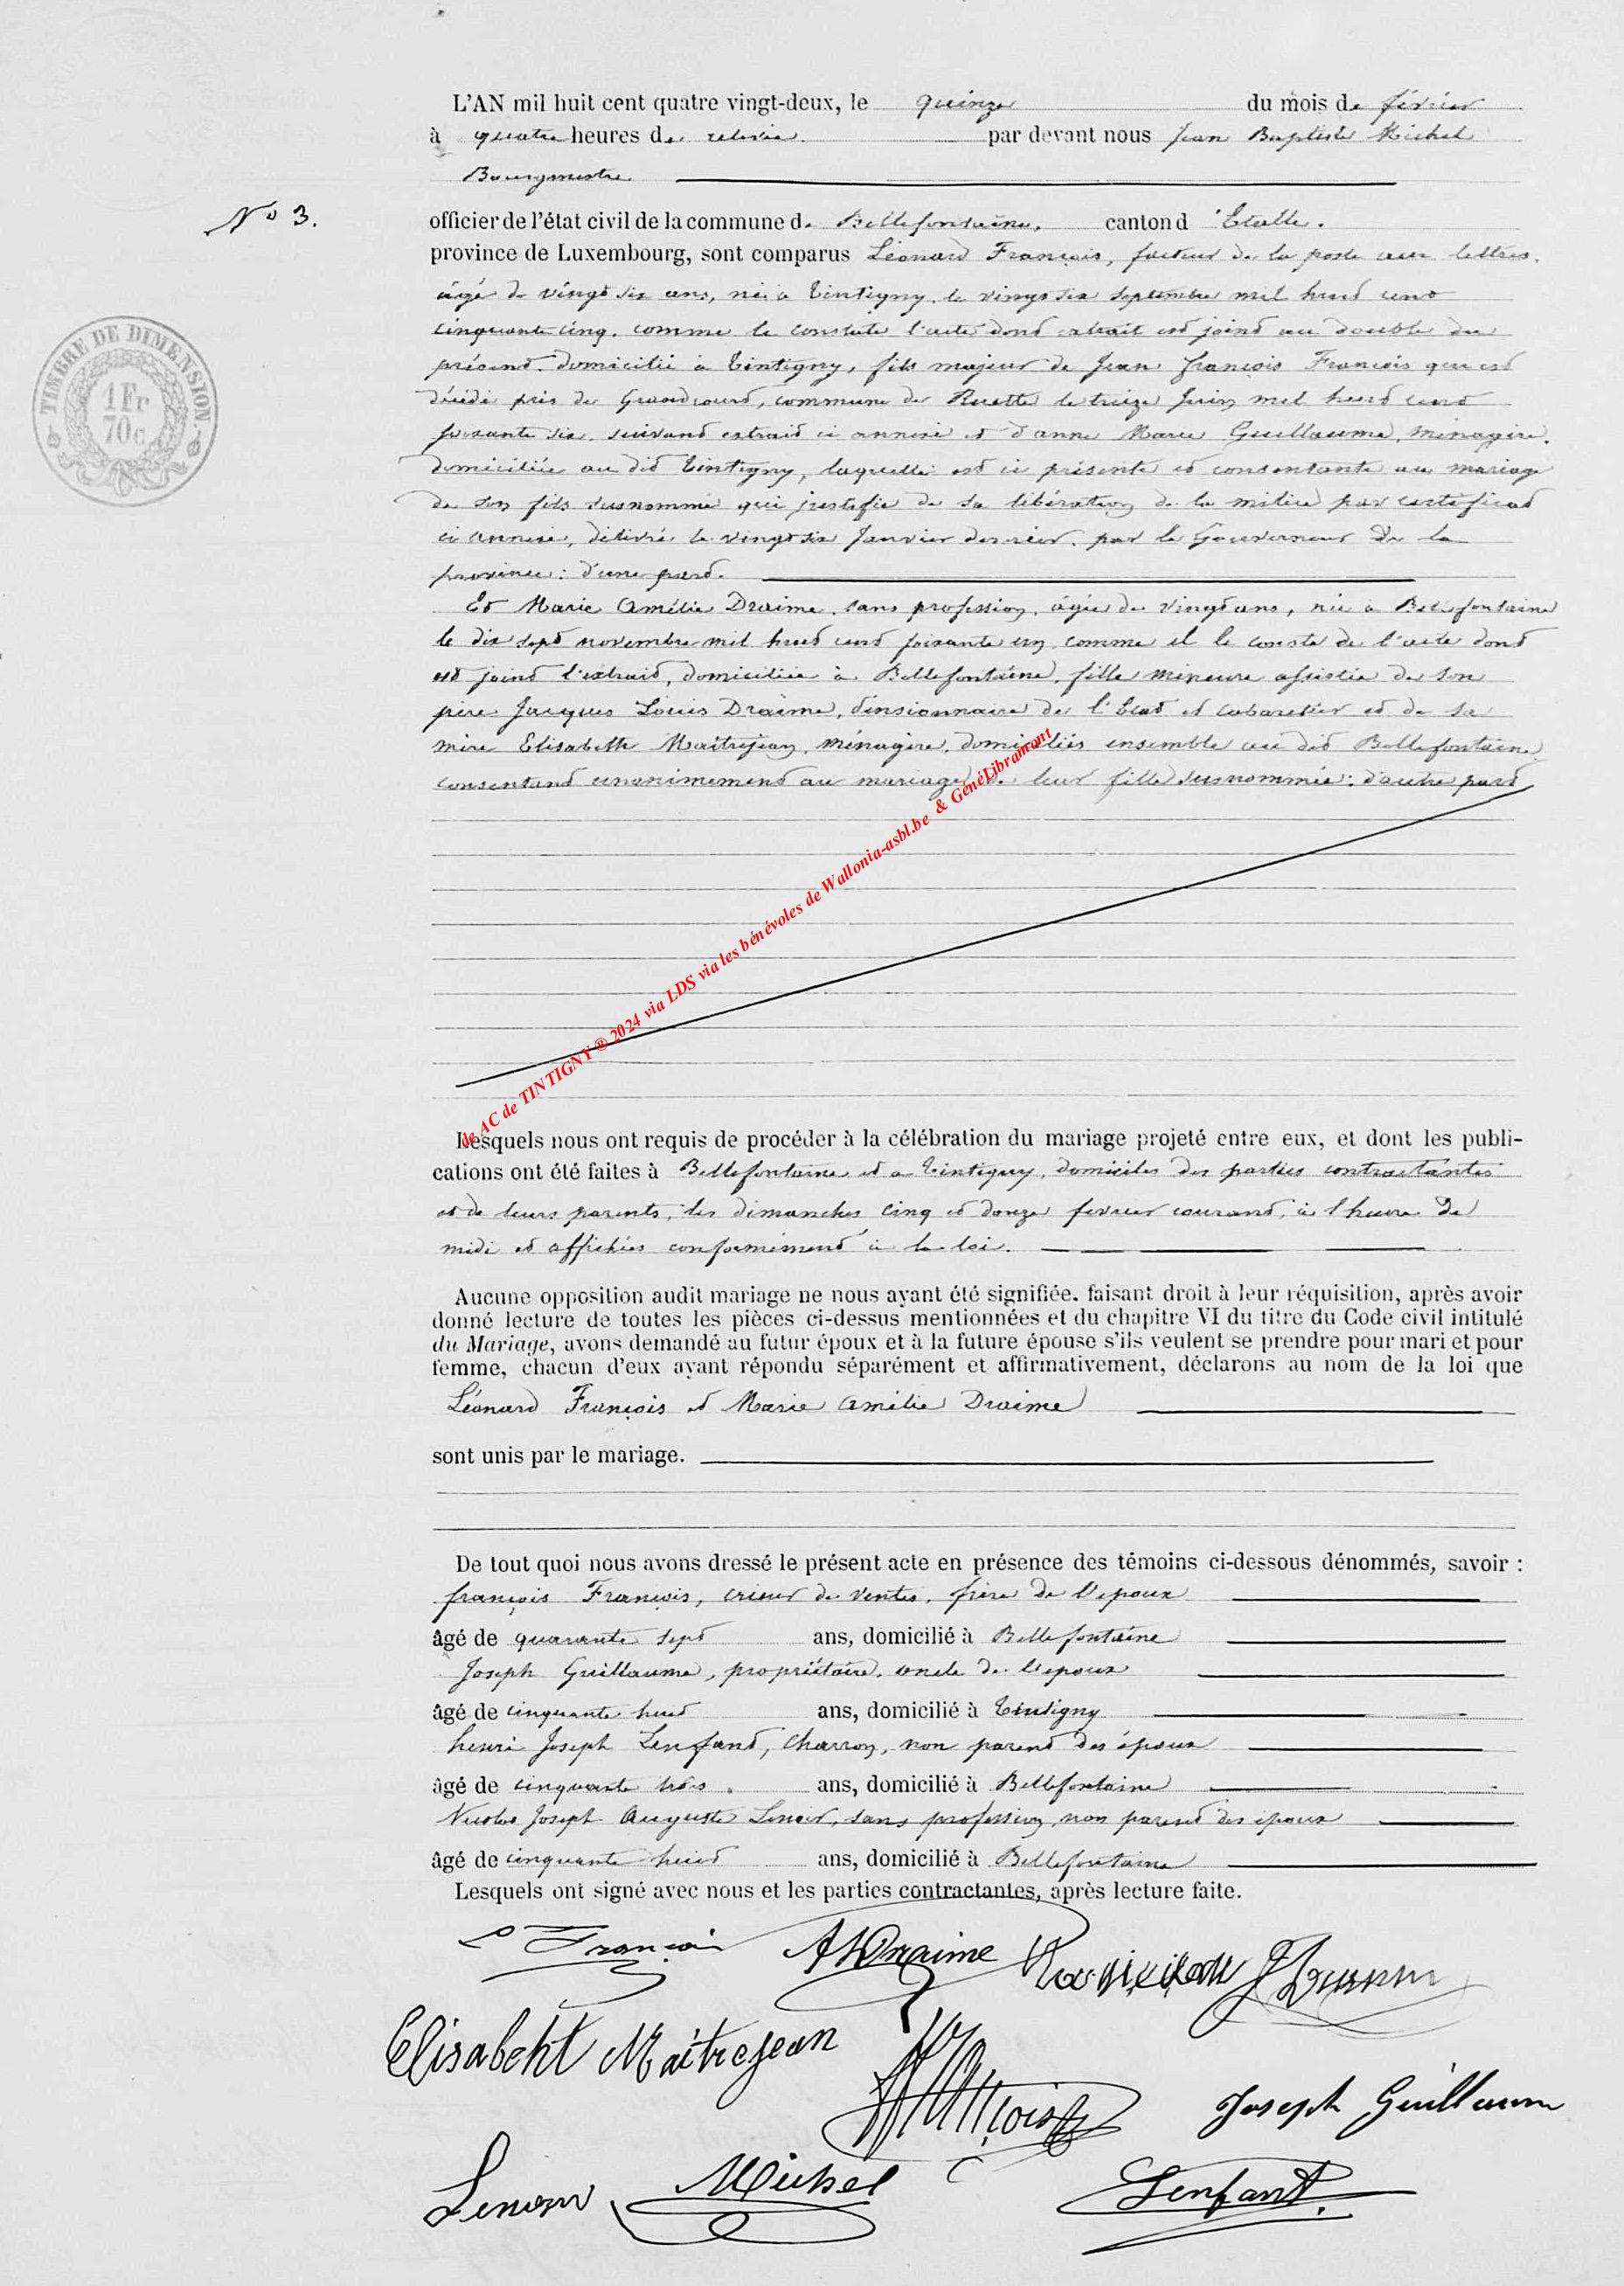 L'AN mil huit cent quatre vingt-deux, le quinze du mois de février
à quatre heures de relevée. par devant nous Jean Baptiste Michel
Bourgmestre
N° 3.
officier de l'état civil de la commune de Bellefontaine, canton d'Etalle.
province de Luxembourg, sont comparus Léonard François, facteur de la poste aux lettres.
âgé de vingt six ans, né à Tintigny le vingt six septembre mil huit cent
cinquante cinq, comme le constate l'acte dont extrait est joint au double du
présent, domicilié à Tintigny, fils majeur de Jean françois François qui est
décédé près de Grandcourt, commune de Ruette le treize juin mil huit cent
soixante six, suivant extrait ci annexé et d'anne Marie Guillaume, ménagère,
domiciliée au dit Tintigny, laquelle est ici présente et consentante au mariage
de son fils susnommé qui justifie de sa libération de la milice par certificat
ci annexé, délivré le vingt six Janvier dernier, par le Gouverneur de la
province : d'une part.
Et Marie Amélie Draime, sans profession, âgée de vingt ans, née à Bellefontaine
le dix sept novembre mil huit cent soixante un, comme il le conste de l'acte dont
est joint l'extrait, domiciliée à Bellefontaine, fille mineure assistée de son
père Jacques Louis Draime, pensionnaire de l'Etat et cabaretier et de sa
mère Elisabeth Maitrejean, ménagère, domiciliés ensemble au dit Bellefontaine
consentant unanimement au mariage de leur fille susnommée : d'autre part
de AC de TINTIGNY ® 2024 via LDS via les bénévoles de Wallonia-asbl.be & GénéLibramont
Lesquels nous ont requis de procéder à la célébration du mariage projeté entre eux, et dont les publi-
cations ont été faites à Bellefontaine et à Tintigny, domiciles des parties contractantes
et de leurs parents, les dimanches cinq et douze fevrier courant, à l'heure de
midi et affichées conformément à la loi.
Aucune opposition audit mariage ne nous ayant été signifiée. faisant droit à leur réquisition, après avoir
donné lecture de toutes les pièces ci-dessus mentionnées et du chapitre VI du titre du Code civil intitulé
du Mariage, avons demandé au futur époux et à la future épouse s'ils veulent se prendre pour mari et pour
femme, chacun d'eux ayant répondu séparément et affirmativement, déclarons au nom de la loi que
Léonard François et Marie Amélie Draime
sont unis par le mariage.
De tout quoi nous avons dressé le présent acte en présence des témoins ci-dessous dénommés, savoir :
françois François, crieur de ventes, frère de l'epoux
âgé de quarante sept ans, domicilié à Bellefontaine
Joseph Guillaume, propriétaire, oncle de l'epoux
âgé de cinquante huit ans, domicilié à Tintigny
henri Joseph Lenfant, Charron, non parent des époux
âgé de cinquante trois ans, domicilié à Bellefontaine
Nicolas Joseph Auguste Lenoir, sans profession, non parent des epoux
âgé de cinquante huit ans, domicilié à Bellefontaine
Lesquels ont signé avec nous et les parties contractantes, après lecture faite.
L François ADraime
Elisabeht Maitrejean
François Joseph Guillaume
Lenoir Michel Lenfant
TIMBRE DE DIMENSION
1 Fr
70 c